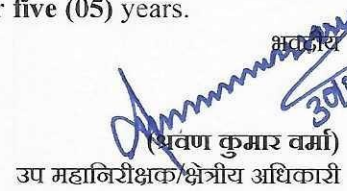 r five (05) years.
भवदीय
(श्रवण कुमार वर्मा)
उप महानिरीक्षक/क्षेत्रीय अधिकारी